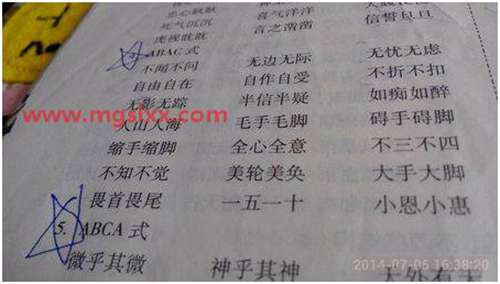 忠心耿耿
死气沉沉 喜气洋洋
虎视眈眈 言之凿凿 信誓旦旦
ABAC 式
不闻不问 无边无际 无忧无虑
自由自在 自作自受 不折不扣
无影无踪 半信半疑 如痴如醉
www.mgslxx.com
人山人海 毛手毛脚 碍手碍脚
缩手缩脚 全心全意 不三不四
不知不觉 美轮美奂 大手大脚
畏首畏尾 一五一十 小恩小惠
5. ABCA 式
微乎其微 神乎其神 天外有天
2014-07-05 16:38:20